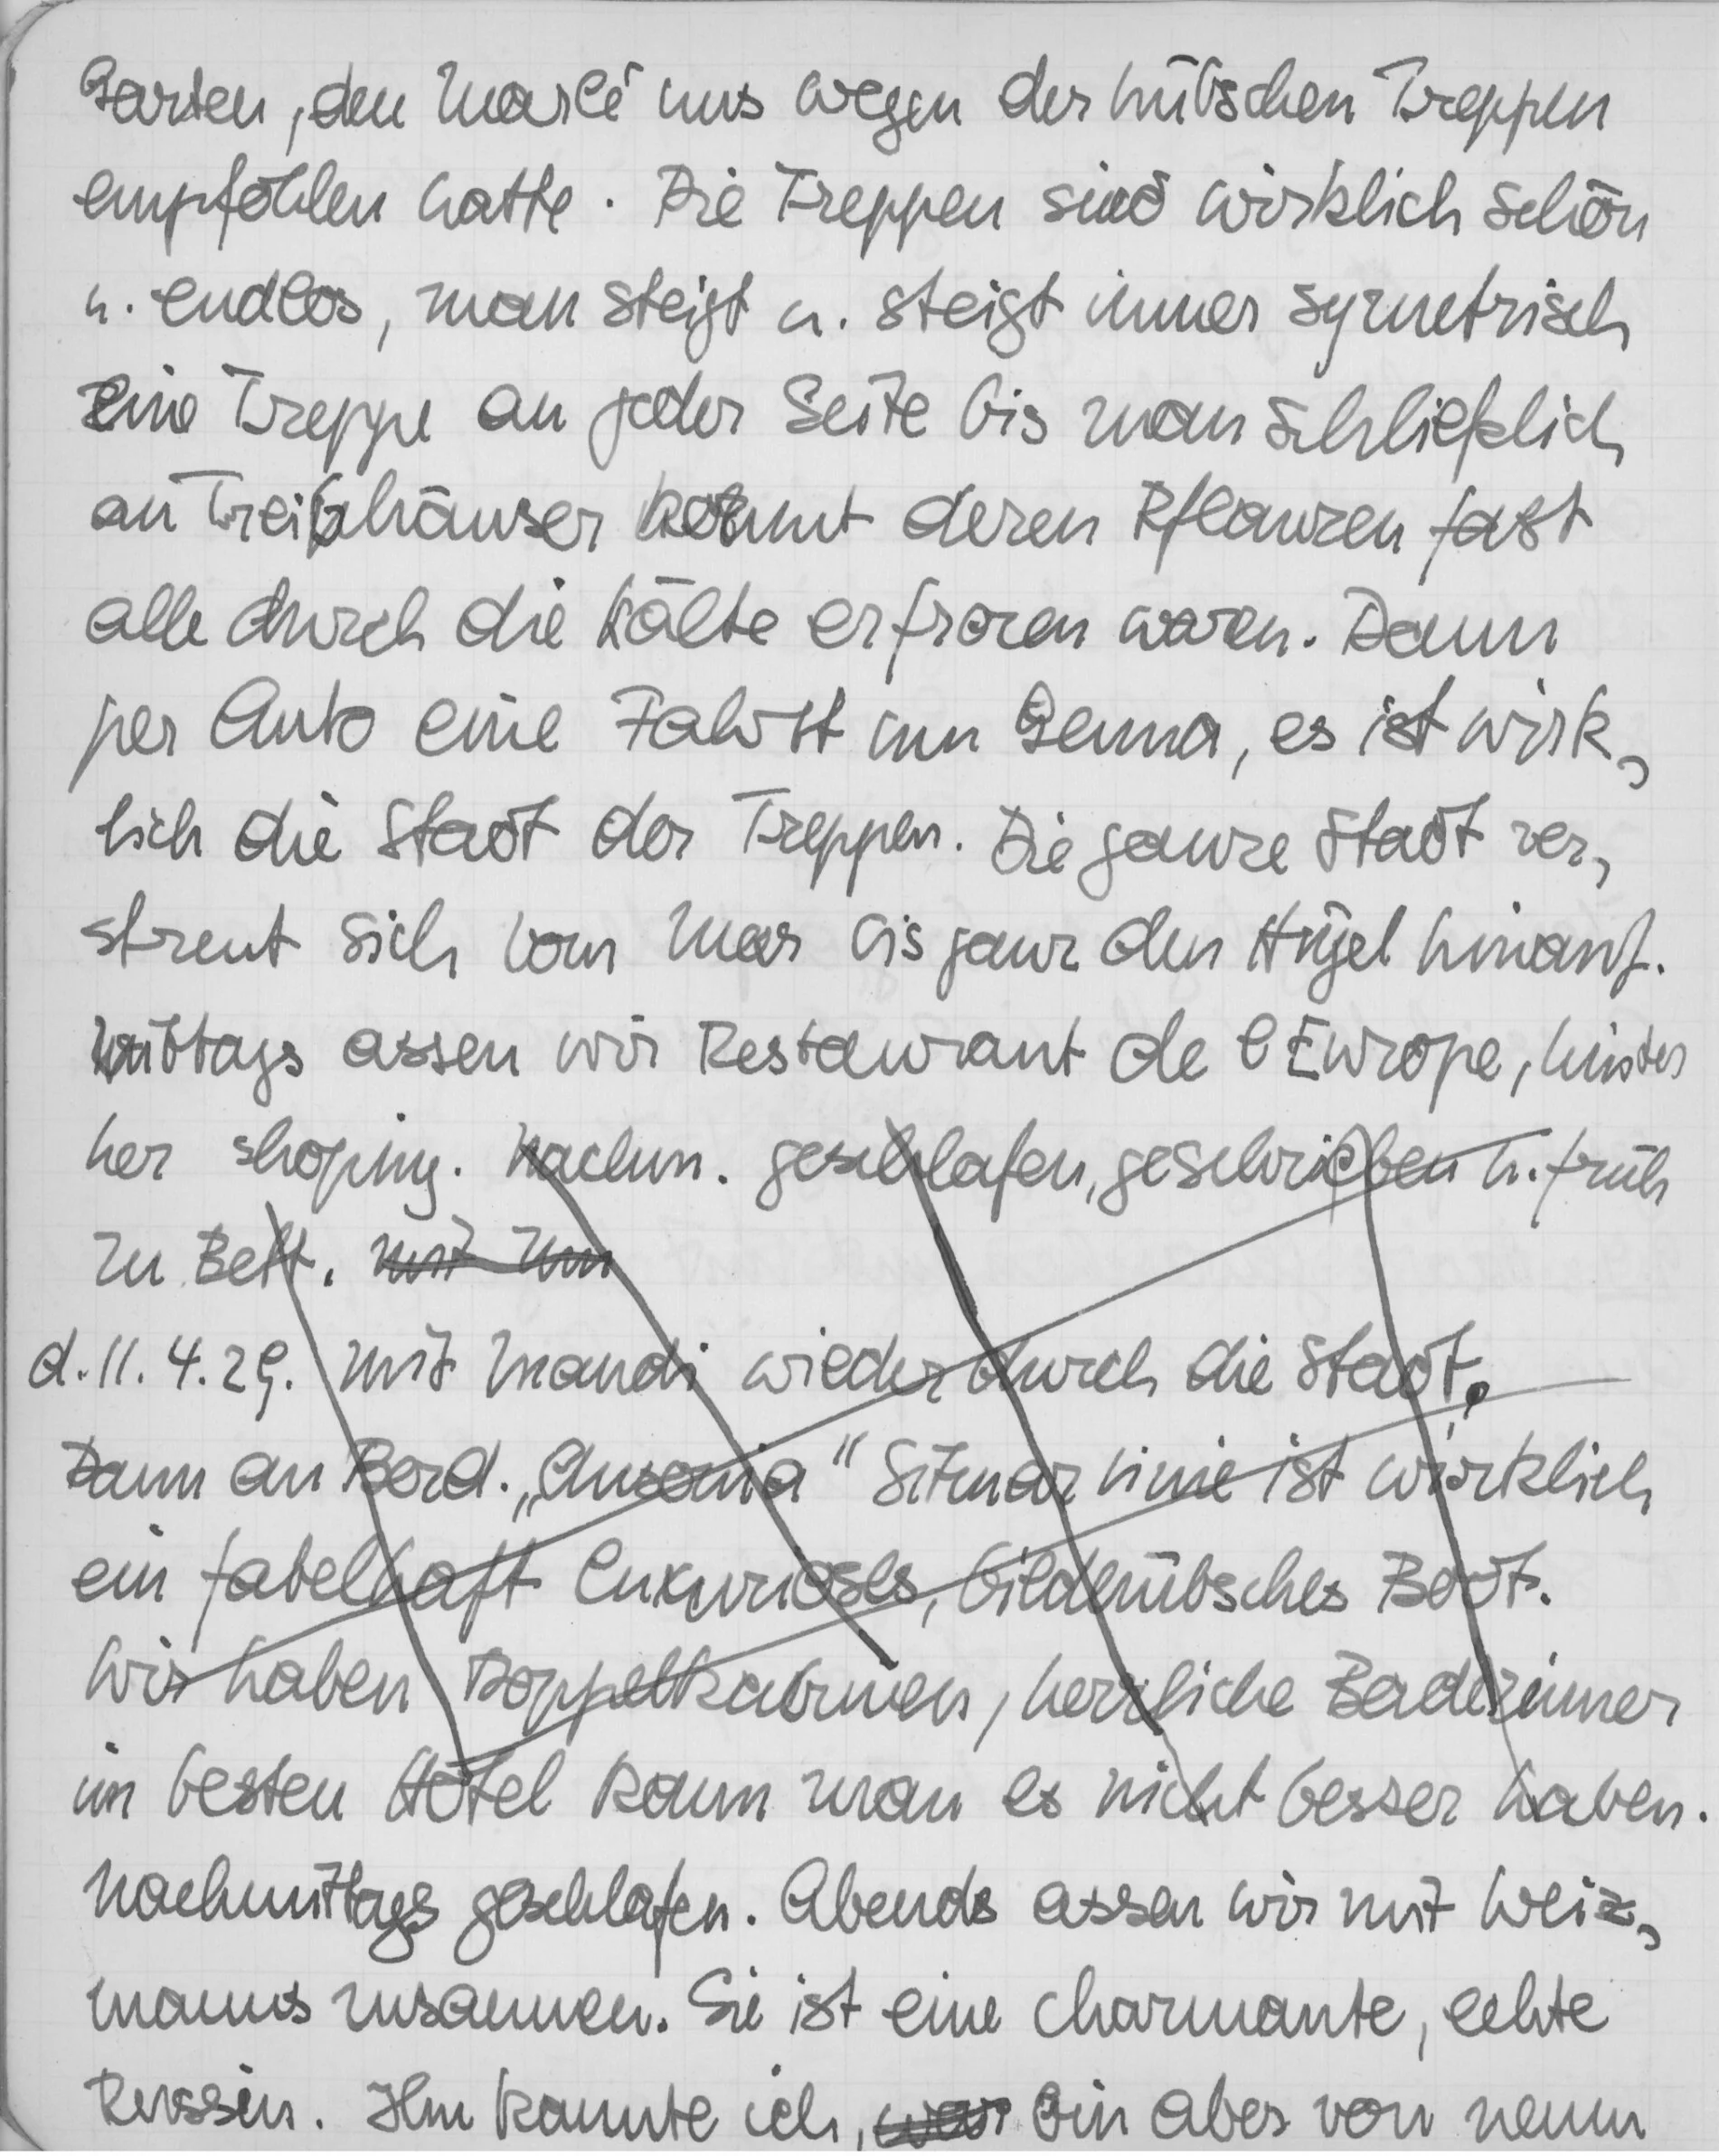 Garten, den Marlé uns wegen der hübschen Treppen
empfohlen hatte. Die Treppen sind wirklich schön
u. endlos, man steigt u. steigt immer symetrisch
eine Treppe an jeder Seite bis man schließlich
an Treibhäuser kommt deren Pflanzen fast
alle durch die Kälte erfroren waren. Dann
per Auto eine Fahrt um Genua, es ist wirk,
lich die Stadt der Treppen. Die ganze Stadt zer,
streut sich vom Meer bis ganz den Hügel hinauf.
Mittags assen wir Restaurant de l'Europe, hinter
her shoping. Nachm. geschlafen, geschrieben u. früh
zu Bett. mit Um
d. 11. 4. 29. Mit Mandi wieder durch die Stadt.
Dann an Bord. „Ausonia" Sitmar Linie ist wirklich
ein fabelhaft luxuriöses, bildhübsches Boot.
Wir haben Doppelkabinen, herrliche Badezimmer
im besten Hôtel kann man es nicht besser haben.
Nachmittags geschlafen. Abends assen wir mit Weiz,
manns zusammen. Sie ist eine charmante, echte
Russin. Ihn kannte ich, war bin aber von neuem